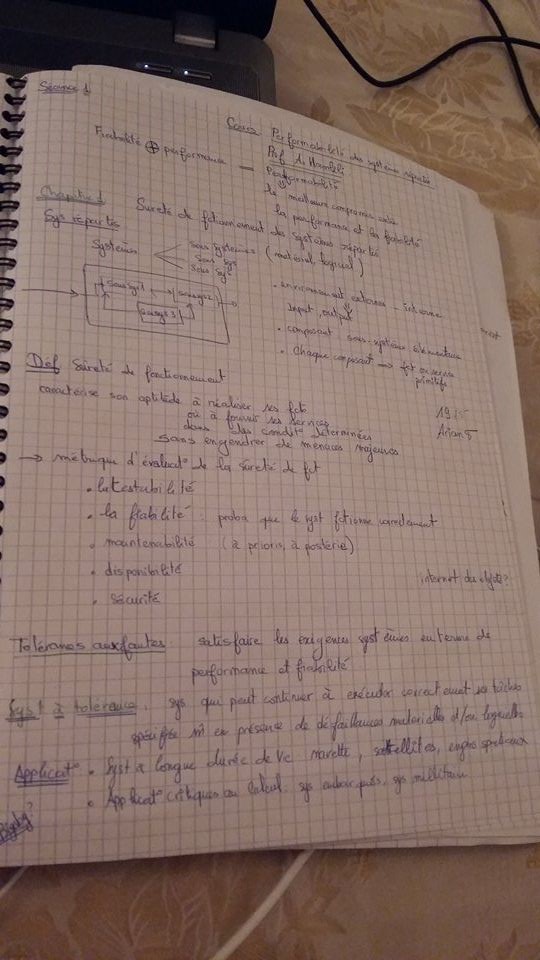 Séance 1
Cours Performabilité des systèmes répartis
Prof A. Hamfeli
Fiabilité ⊕ performance = Performabilité
le meilleur compromis entre
la performance et la fiabilité
Chapitre 1 Sureté de fctionnement des systèmes répartis
Sys répartis
Système sous systèmes (matériel, logiciel)
sous sys
sous sys
sous sys 1 sous sys 2
sous sys 3
• environnement externe - interne
Input, output
• composant sous-système élémentaire
• Chaque composant → fct ou service
primitifs
Déf Sûreté de fonctionnement
caractérise son aptitude à réaliser ses fct
où à fournir ses services
dans des condit° déterminées
sans engendrer de menaces majeures
19
Arian 5
→ métrique d'évaluat° de la sûreté de fct
• la testabilité
• la fiabilité : proba que le syst fctionne correctement
• maintenabilité (à prioris, à postérie)
• disponibilité
• sécurité
internet du objets?
Tolérances aux fautes : satisfaire les exigences systèmes en terme de
performance et fiabilité
Syst à tolérance : sys qui peut continuer à exécuter correctement ses tâches
spécifiée m̂ en présence de défaillances matérielles d/ou logicielles
Applicat° • Syst à longue durée de vie navette, satellites, engins spatiaux
• Applicat° critiques au calcul sys embarqués, sys militaire